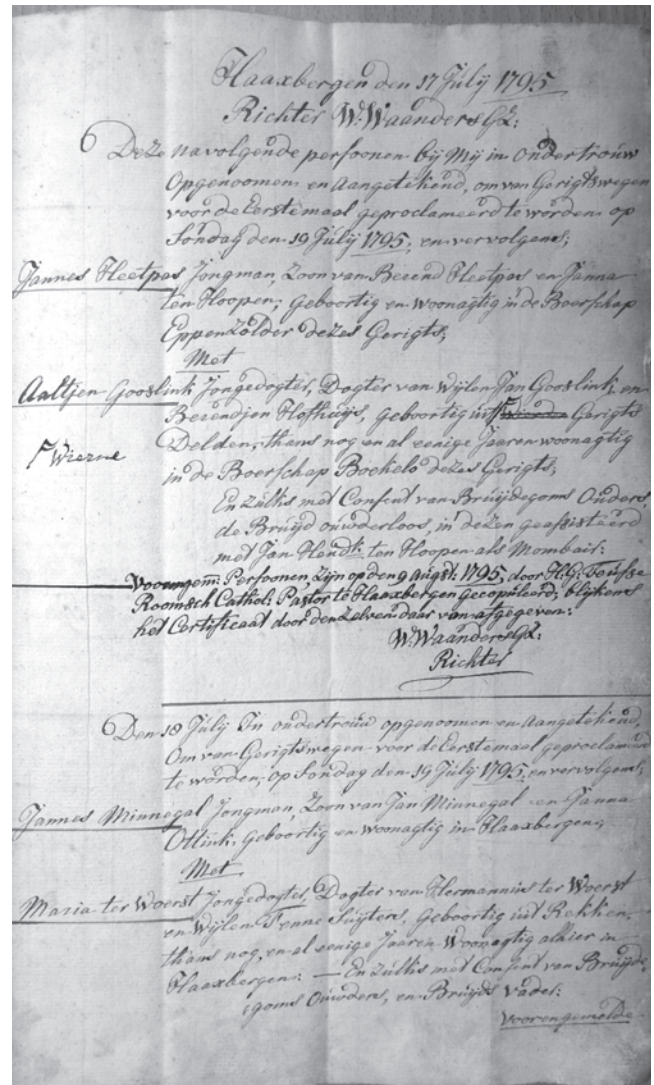 Haaxbergen den 17 Julij 1795
Richter W: Waanders GZ:
Deze navolgende persoonen bij Mij in Ondertrouw
Opgenoomen en aangetekend, om van Gerigtswegen
voor de Eerstemaal geproclameerd te worden op
Sondag den 19 Julij 1795, en vervolgens;
Jannes Heetpas Jongman, Zoon van Berend Heetpas en Janna
ten Hoopen; geboortig en woonagtig in de Boerschap
Eppenzolder dezes Gerigts;
Met
Aaltjen Gooslink Jongedogter, Dogter van wijlen Jan Gooslink, en
Berendjen Hofhuijs, geboortig uit Gerigts
Wierne Delden, thans nog en al eenige Jaaren woonagtig
in de Boerschap Boekelo dezes Gerigts;
En zulks met Consent van Bruijdegoms Ouders,
de Bruijd ouwderloos, in dezen geassisteerd
met Jan Hendk: ten Hoopen als Mombair:
Voorengem: Persoonen zijn op den 9 augst: 1795, door H: G:
Roomsch Cathol: Pastor te Haaxbergen gecopuleerd; blijkens
het Certificaat door denzelven daar van afgegeven:
W: Waanders GZ:
Richter
Den 18 Julij In ondertrouw opgenoomen en aangetekend,
Om van Gerigtswegen voor de Eerstemaal geproclameerd
te worden, op Sondag den 19 Julij 1795, en vervolgens;
Jannes Minnegal Jongman, Zoon van Jan Minnegal en Janna
Ottink, geboortig en woonagtig in Haaxbergen;
Met
Maria ter Woerst Jongedogter, Dogter van Hermannus ter Woerst
en wijlen Fenne Suijters, geboortig uit Rekken,
thans nog, en al eenige Jaaren Woonagtig alhier in
Haaxbergen: — En zulks met Consent van Bruijde,
goms Ouwders, en Bruijds Vader:
voorengemelde